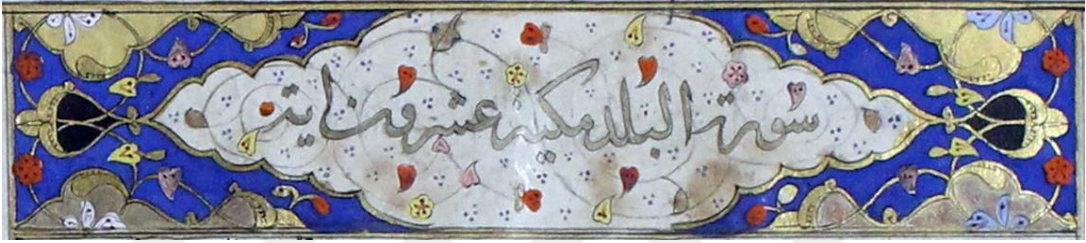 سورة البلد مكية عشرون اية